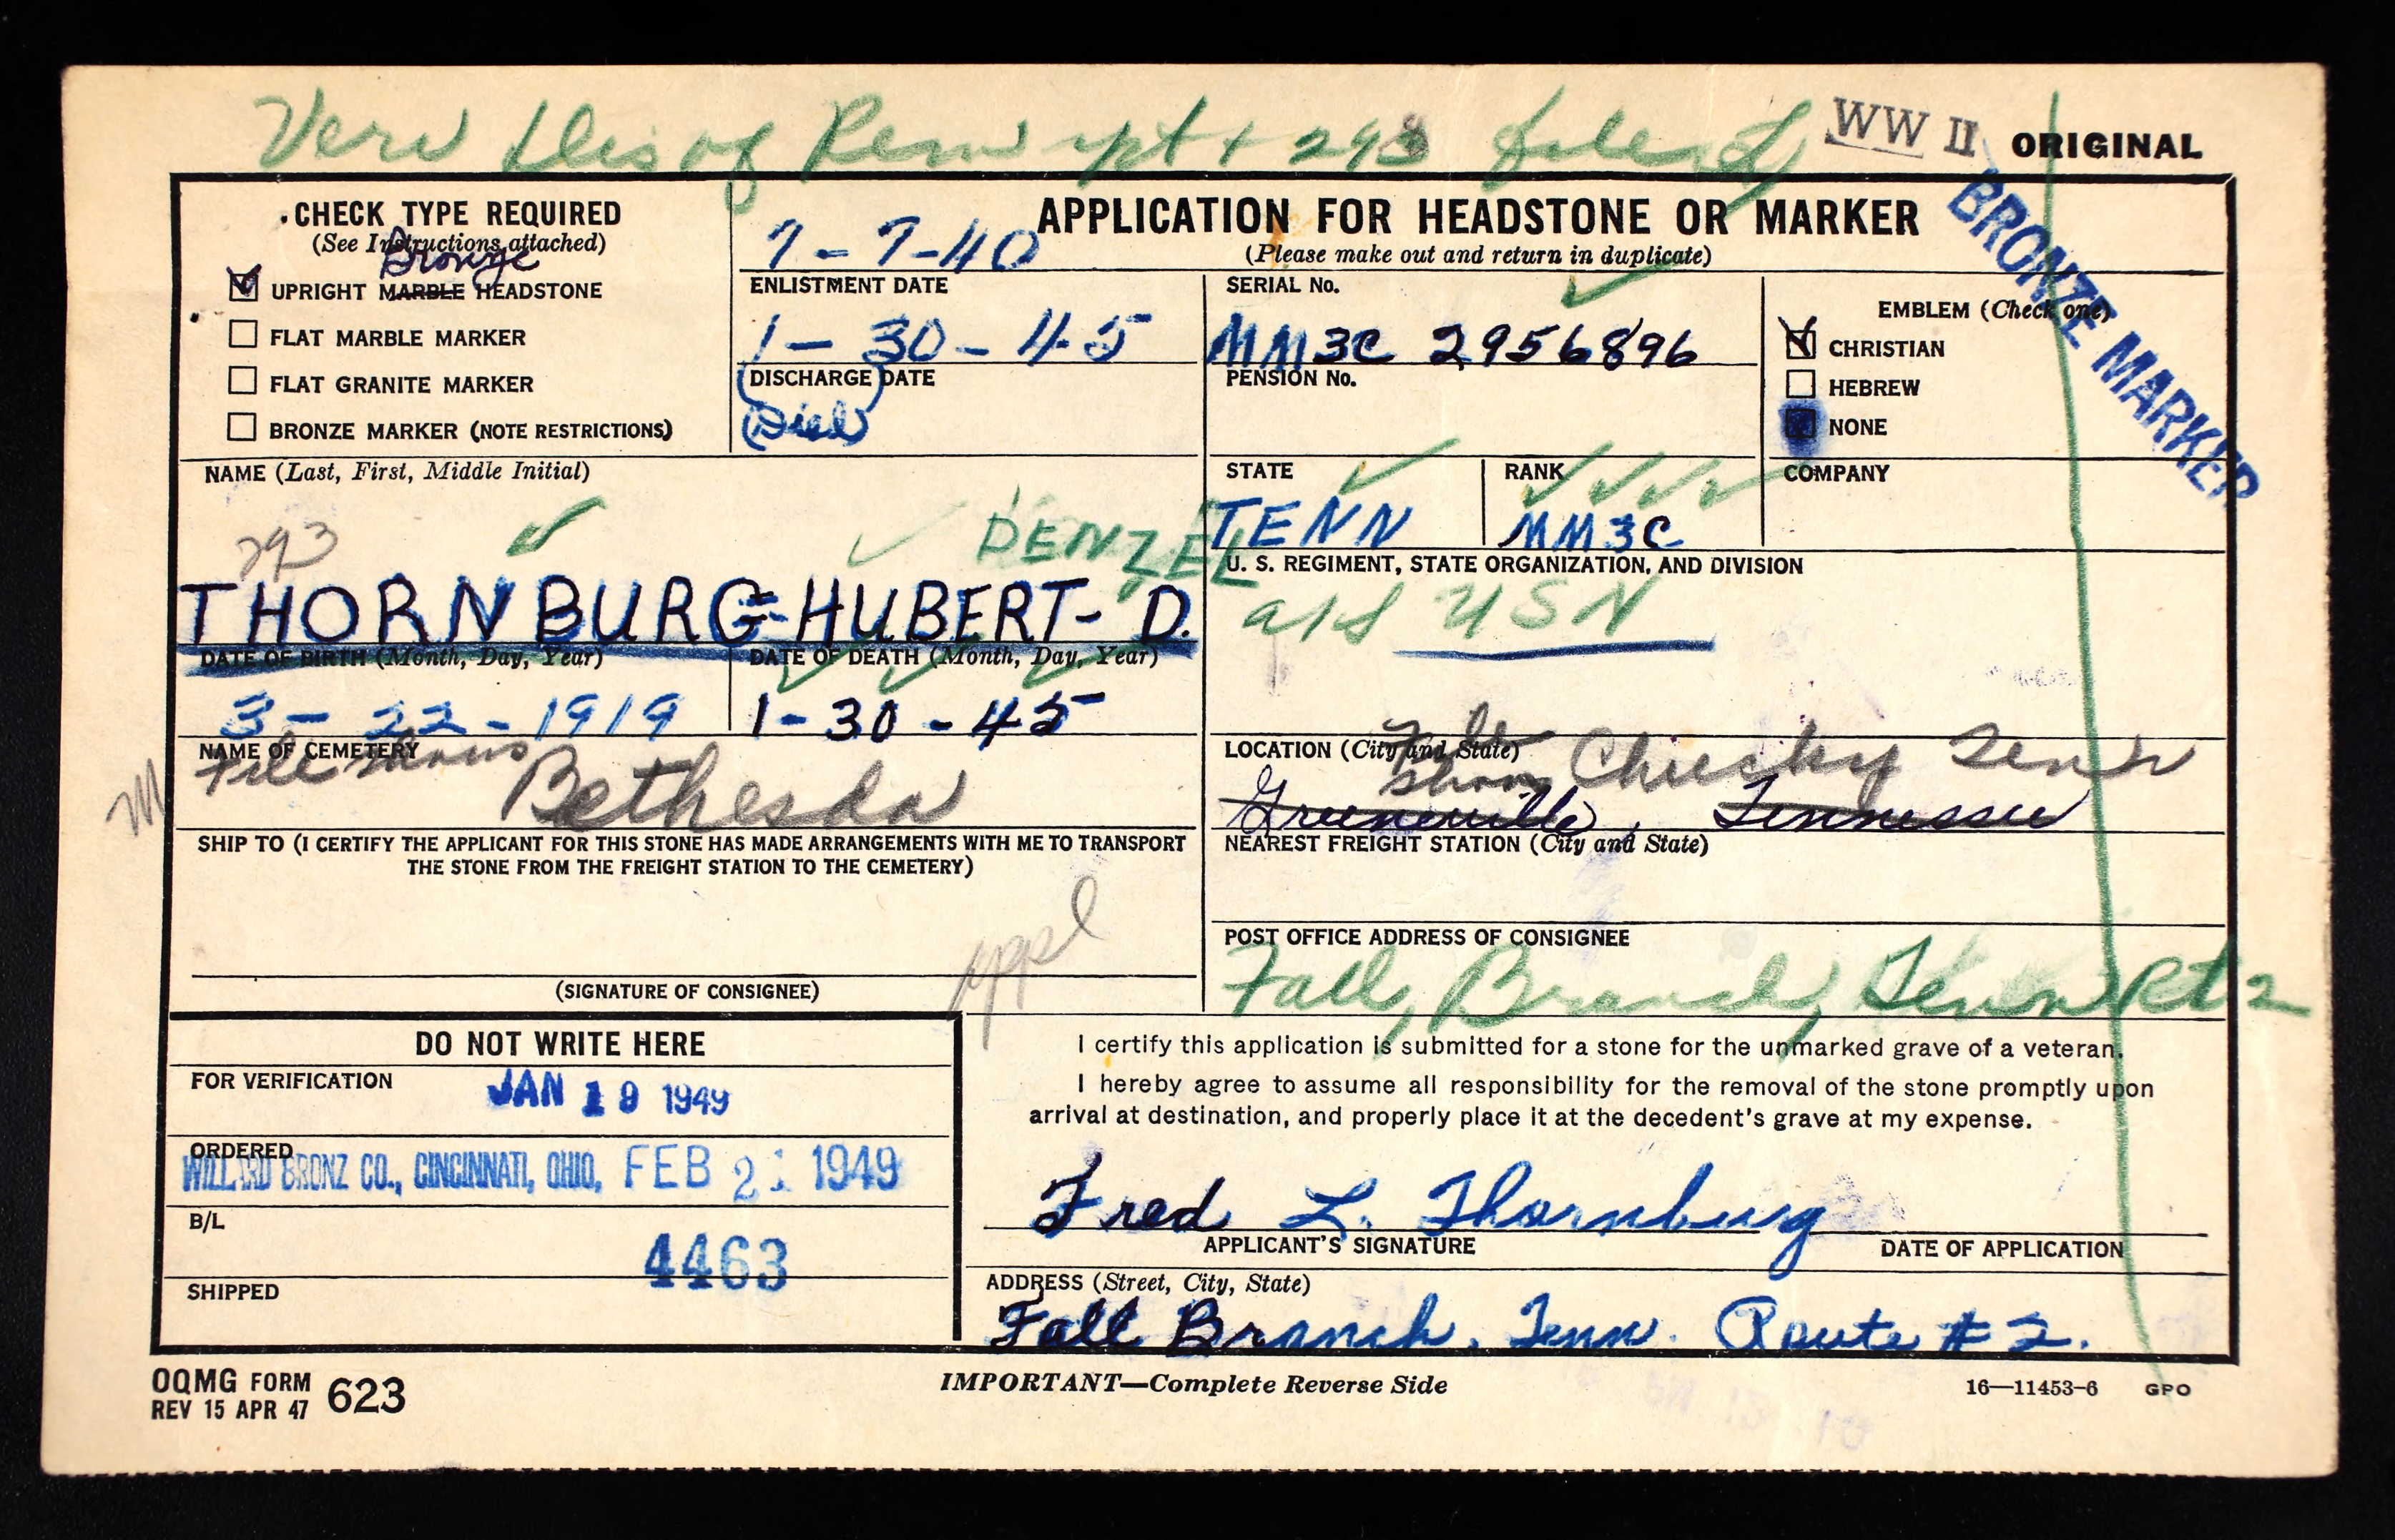 Veri Dis of Rem rpt + 293 file
WW II ORIGINAL
CHECK TYPE REQUIRED
(See Instructions attached)
Bronze
UPRIGHT MARBLE HEADSTONE
FLAT MARBLE MARKER
FLAT GRANITE MARKER
BRONZE MARKER (NOTE RESTRICTIONS)
7-7-40
ENLISTMENT DATE
1-30-45
(DISCHARGE) DATE
(Died)
APPLICATION FOR HEADSTONE OR MARKER
(Please make out and return in duplicate)
BRONZE MARKER
SERIAL No.
MM3C 2956896
PENSION No.
EMBLEM (Check one)
CHRISTIAN
HEBREW
NONE
NAME (Last, First, Middle Initial)
293
DENZEL
THORNBURG-HUBERT- D.
STATE
TENN
RANK
MM3C
COMPANY
U. S. REGIMENT, STATE ORGANIZATION, AND DIVISION
USN
DATE OF BIRTH (Month, Day, Year)
3-22-1919
DATE OF DEATH (Month, Day, Year)
1-30-45
NAME OF CEMETERY
File shows Bethesda
LOCATION (City and State)
File shows Chucky Tenn
Greeneville, Tennessee
SHIP TO (I CERTIFY THE APPLICANT FOR THIS STONE HAS MADE ARRANGEMENTS WITH ME TO TRANSPORT
THE STONE FROM THE FREIGHT STATION TO THE CEMETERY)
appl
(SIGNATURE OF CONSIGNEE)
NEAREST FREIGHT STATION (City and State)
POST OFFICE ADDRESS OF CONSIGNEE
Fall, Branch, Tenn Rt 2
DO NOT WRITE HERE
FOR VERIFICATION
JAN 19 1949
ORDERED
WILLARD BRONZ CO., CINCINNATI, OHIO, FEB 21 1949
B/L
4463
SHIPPED
I certify this application is submitted for a stone for the unmarked grave of a veteran.
I hereby agree to assume all responsibility for the removal of the stone promptly upon
arrival at destination, and properly place it at the decedent's grave at my expense.
Fred L. Thornburg
APPLICANT'S SIGNATURE
DATE OF APPLICATION
ADDRESS (Street, City, State)
Fall Branch, Tenn. Route # 2.
OQMG FORM 623
REV 15 APR 47
IMPORTANT—Complete Reverse Side
16—11453-6 GPO